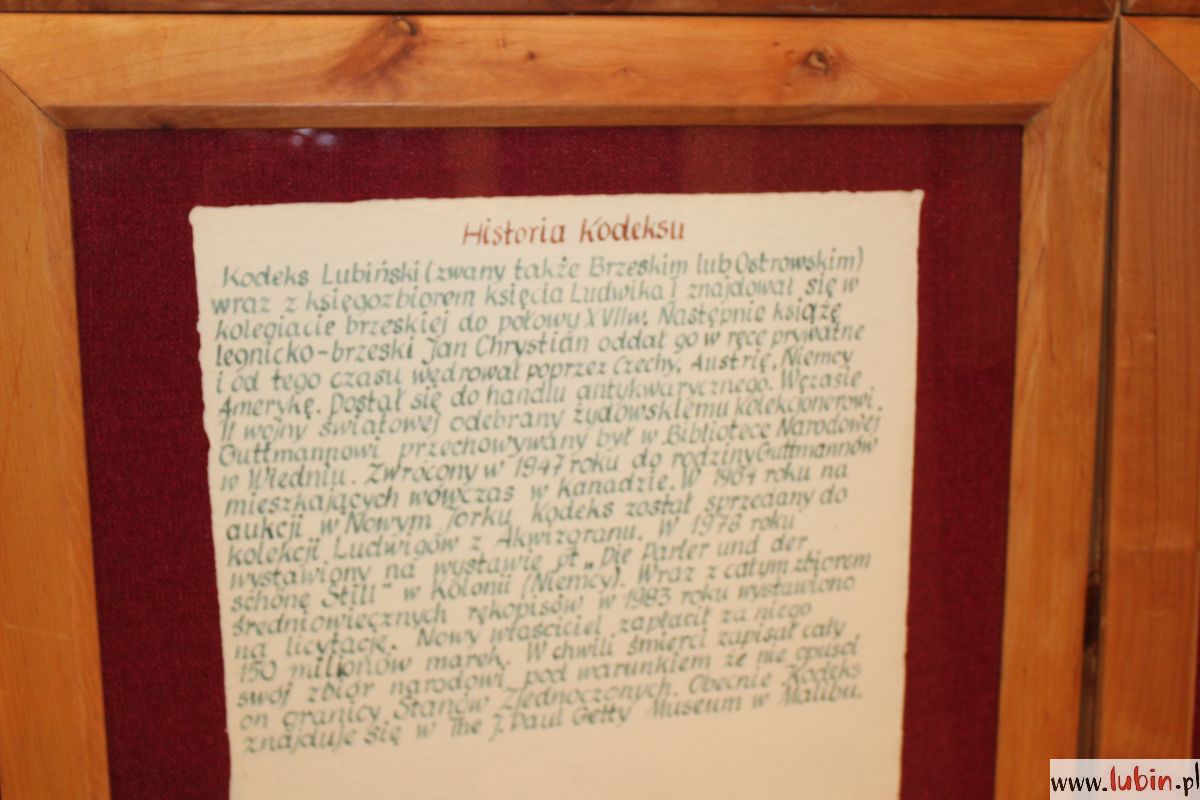 Historia Kodeksu
Kodeks Lubiński (zwany także Brzeskim lub Ostrowskim)
wraz z księgozbiorem księcia Ludwika I znajdował się w
kolegiacie brzeskiej do połowy XVII w. Następnie książę
legnicko-brzeski Jan Chrystian oddał go w ręce prywatne
i od tego czasu wędrował poprzez Czechy, Austrię, Niemcy
Amerykę. Dostał się do handlu antykwarycznego. W czasie
II wojny światowej odebrany żydowskiemu kolekcjonerowi
Guttmannowi przechowywany był w Bibliotece Narodowej
w Wiedniu. Zwrócony w 1947 roku do rodziny Guttmannów
mieszkających wówczas w Kanadzie. W 1964 roku na
aukcji w Nowym Jorku Kodeks został sprzedany do
kolekcji Ludwigów z Akwizgranu. W 1978 roku
wystawiony na wystawie pt. „Die Parler und der
schöne Still" w Kolonii (Niemcy). Wraz z całym zbiorem
średniowiecznych rękopisów w 1983 roku wystawiono
na licytację. Nowy właściciel zapłacił za niego
150 milionów marek. W chwili śmierci zapisał cały
swój zbiór narodowi pod warunkiem że nie opuści
on granicy Stanów Zjednoczonych. Obecnie Kodeks
znajduje się w The J. Paul Getty Museum w Malibu.
www.lubin.pl